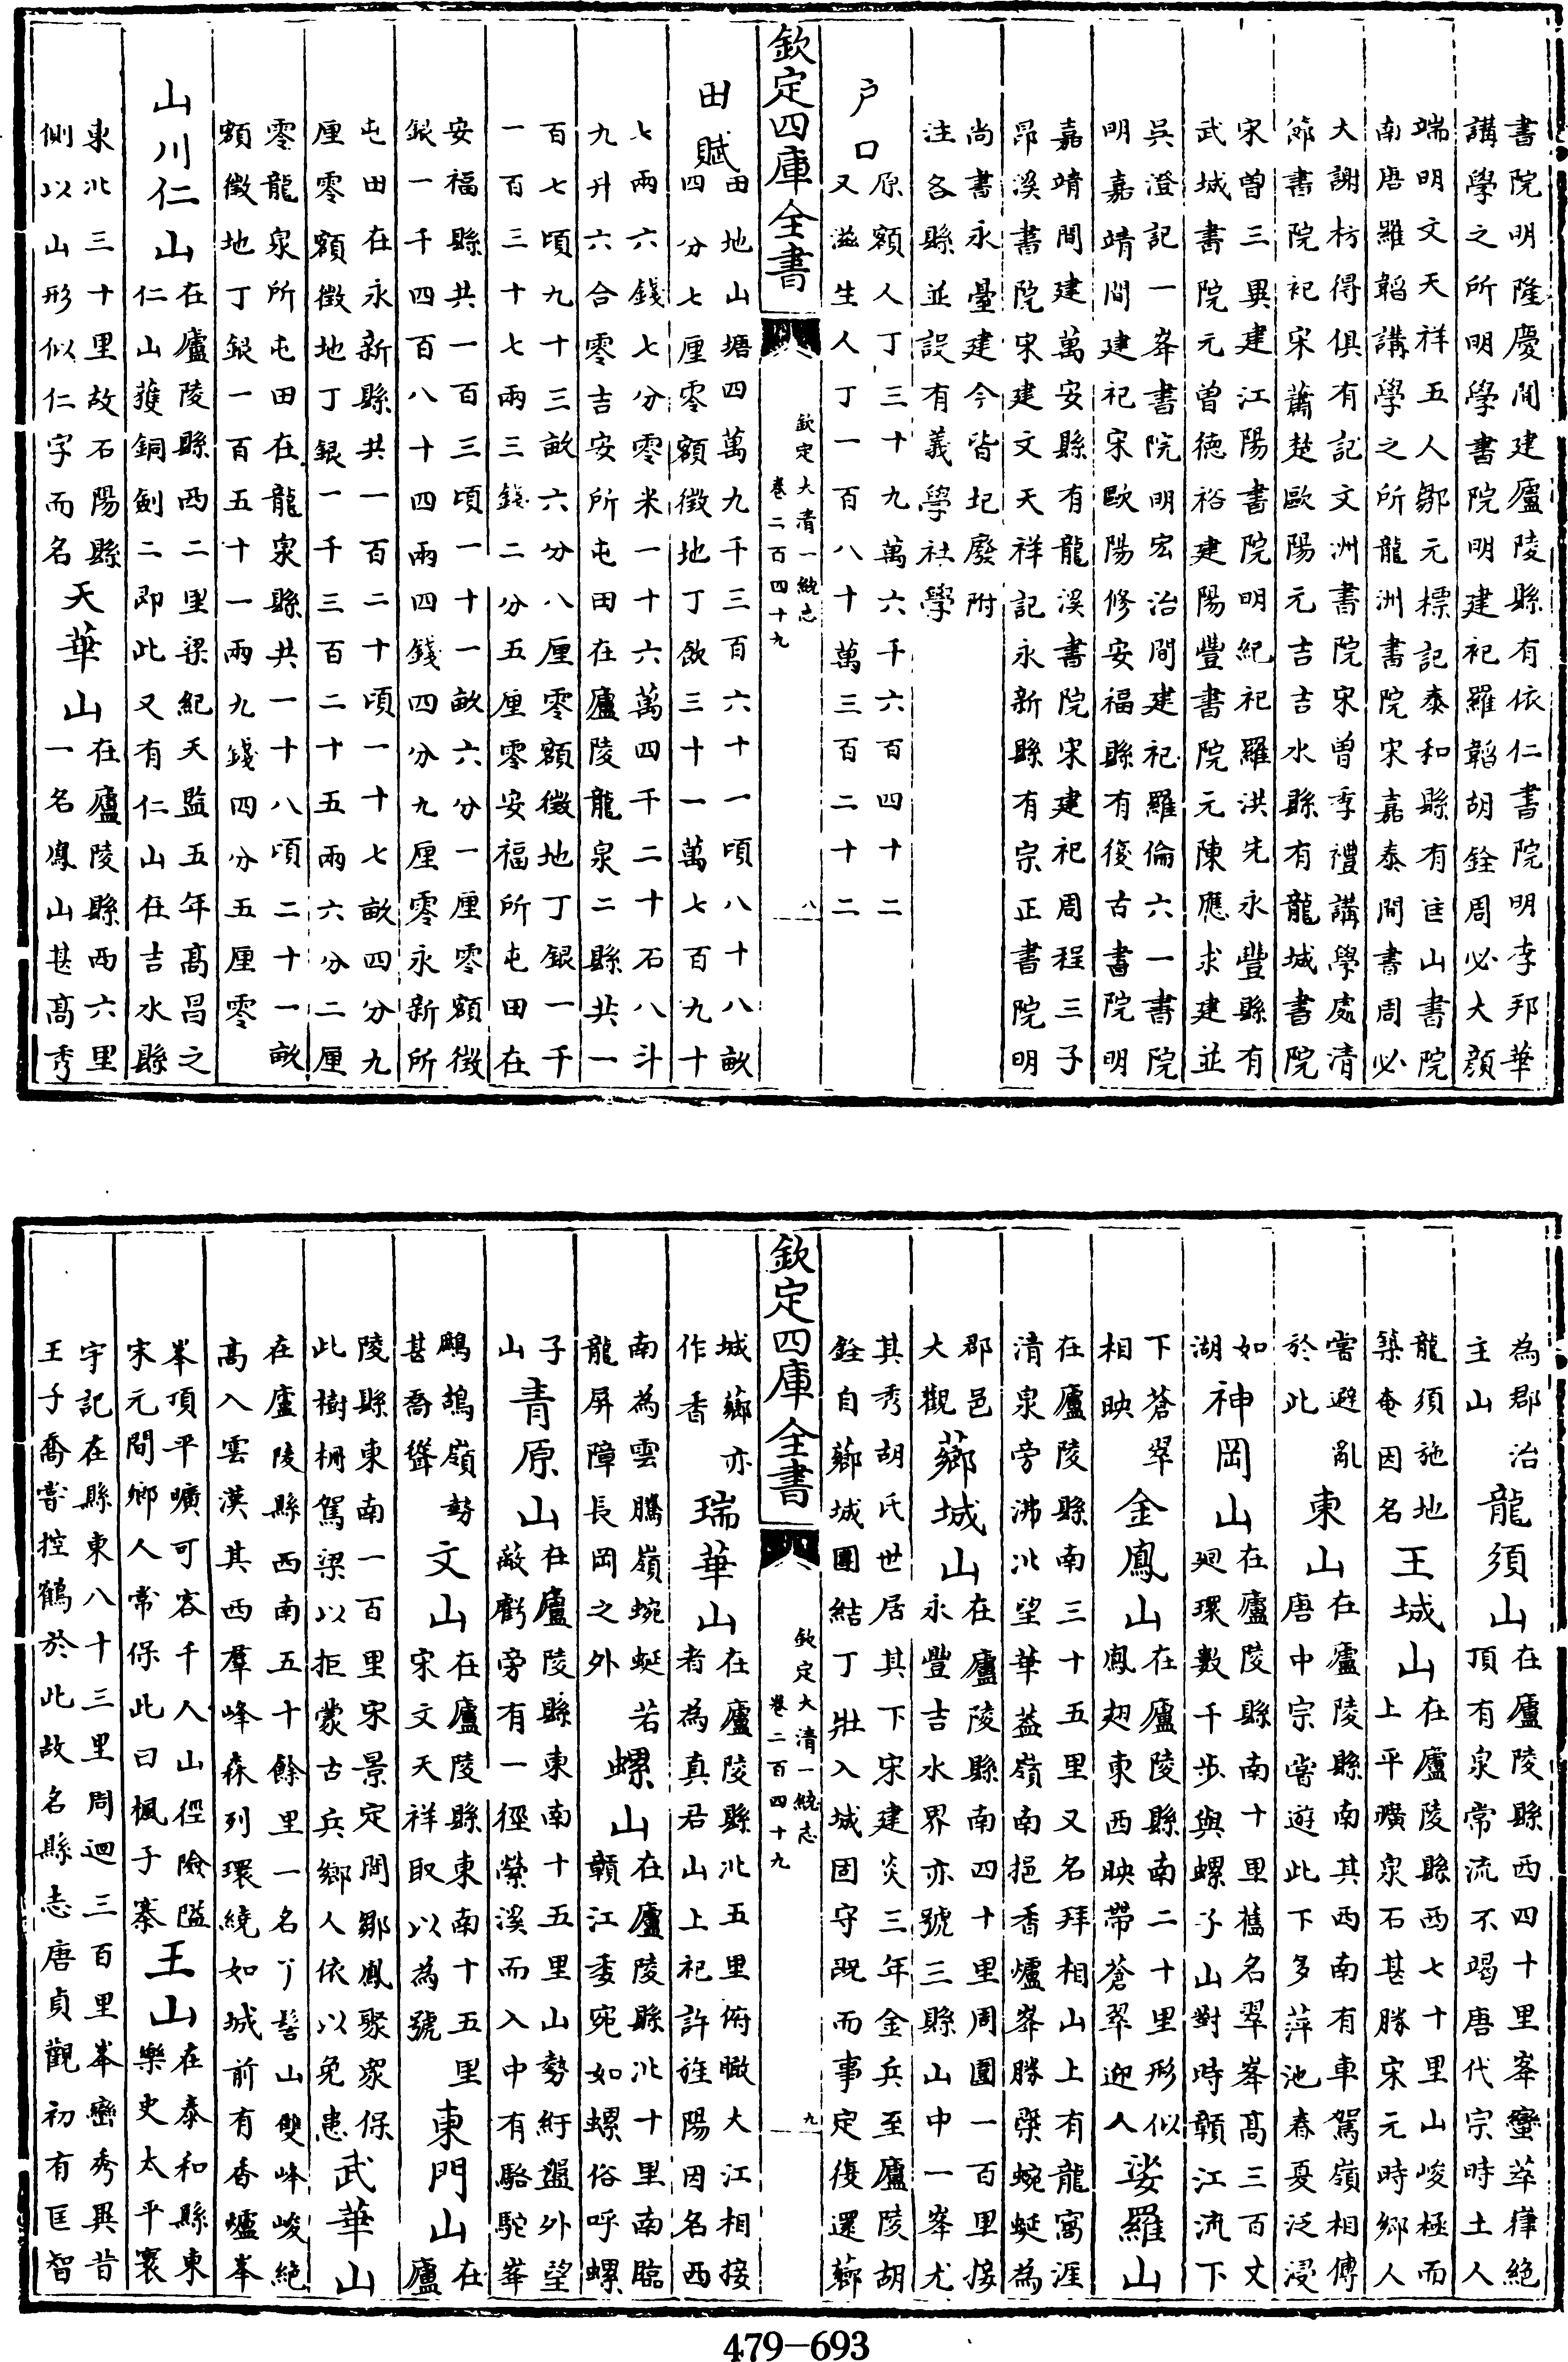 書院明隆慶間建廬陵縣有依仁書院明李邦華
講學之所明學書院明建祀羅韜胡銓周必大顔
端明文天祥五人鄒元標記泰和縣有匡山書院
南唐羅韜講學之所龍洲書院宋嘉泰間書周必
大謝枋得俱有記文洲書院宋曽季禮講學處清
節書院祀宋蕭楚歐陽元吉吉水縣有龍城書院
宋曽三異建江陽書院明紀祀羅洪先永豐縣有
武城書院元曽徳裕建陽豐書院元陳應求建並
吳澄記一峯書院明宏治間建祀羅倫六一書院
明嘉靖間建祀宋歐陽修安福縣有復古書院明
嘉靖間建萬安縣有龍溪書院宋建祀周程三子
昂溪書院宋建文天祥記永新縣有宗正書院明
尚書永臺建今皆圮廢附
注各縣並設有義學社學
户口
原額人丁三十九萬六千六百四十二
又滋生人丁一百八十萬三百二十二
欽定四庫全書
欽定大清一統志
卷二百四十九
八
田賦
田地山塘四萬九千三百六十一頃八十八畝
四分七厘零額徵地丁飲三十一萬七百九十
七兩六錢七分零米一十六萬四千二十石八斗
九升六合零吉安所屯田在廬陵龍泉二縣共一
百七頃九十三畝六分八厘零額徵地丁銀一千
一百三十七兩三錢二分五厘零安福所屯田在
安福縣共一百三頃一十一畝六分一厘零額徵
銀一千四百八十四兩四錢四分九厘零永新所
屯田在永新縣共一百二十頃一十七畝四分九
厘零額徵地丁銀一千三百二十五兩六分二厘
零龍泉所屯田在龍泉縣共一十八頃二十一畝
額徵地丁銀一百五十一兩九錢四分五厘零
山川仁山
在廬陵縣西二里梁紀天監五年髙昌之
仁山獲銅劍二即此又有仁山在吉水縣
東北三十里故石陽縣
側以山形似仁字而名
天華山
在廬陵縣西六里
一名鳳山甚髙秀
為郡治
主山
龍須山
在廬陵縣西四十里峯巒萃嵂絶
頂有泉常流不竭唐代宗時土人
龍須施地
築奄因名
王城山
在廬陵縣西七十里山峻極而
上平曠泉石甚勝宋元時鄉人
嘗避亂
於此
東山
在廬陵縣南其西南有車駕嶺相傅
唐中宗嘗遊此下多萍池春夏泛浸
如
湖
神岡山
在廬陵縣南十里舊名翠峯髙三百丈
廻環數千步與螺子山對時贛江流下
下蒼翠
相映
金鳳山
在廬陵縣南二十里形似
鳳翅東西映帶蒼翠迎人
娑羅山
在廬陵縣南三十五里又名拜相山上有龍窩涯
清泉旁沸北望華葢嶺南挹香爐峯勝槩蜿蜒為
郡邑
大觀
薌城山
在廬陵縣南四十里周圍一百里接
永豐吉水界亦號三縣山中一峯尤
其秀胡氏世居其下宋建炎三年金兵至廬陵胡
銓自薌城團結丁壯入城固守既而事定復還薌
欽定四庫全書
欽定大清一統志
卷二百四十九
九
城薌亦
作香
瑞華山
在廬陵縣北五里俯瞰大江相接
者為真君山上祀許旌陽因名西
南為雲騰嶺蜿蜒若
龍屏障長岡之外
螺山
在廬陵縣北十里南臨
贛江委宛如螺俗呼螺
子
山
青原山
在廬陵縣東南十五里山勢紆盤外望
蔽虧旁有一徑縈溪而入中有駱駝峯
鷓鴣嶺勢
甚喬聳
文山
在廬陵縣東南十五里
宋文天祥取以為號
東門山
在
廬
陵縣東南一百里宋景定間鄒鳳聚衆保
此樹柵駕梁以拒蒙古兵鄉人依以免患
武華山
在廬陵縣西南五十餘里一名丫髻山雙峰峻絶
髙入雲漢其西羣峰森列環繞如城前有香爐峯
峯頂平曠可容千人山徑險隘
宋元間鄉人常保此曰楓子寨
王山
在泰和縣東
樂史太平寰
宇記在縣東八十三里周廻三百里峯巒秀異昔
王子喬嘗控鶴於此故名縣志唐貞觀初有匡智
479-693